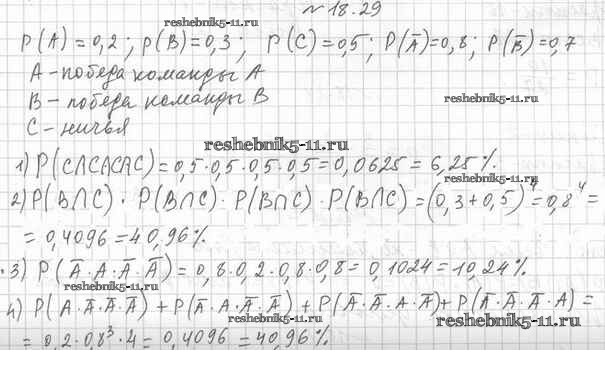 №18.29
reshebnik5-11.ru
P(A)=0,2; P(B)=0,3; P(C)=0,5; P(A̅)=0,8; P(B̅)=0,7
A-победа команды A
reshebnik5-11.ru
B-победа команды B
C-ничья
reshebnik5-11.ru
1) P(C∩C∩C∩C)=0,5·0,5·0,5·0,5=0,0625=6,25%.
reshebnik5-11.ru
2) P(B∩C)·P(B∩C)·P(B∩C)·P(B∩C)=(0,3+0,5)⁴=0,8⁴=
=0,4096=40,96%.
3) P(A̅·A·A̅·A̅)=0,8·0,2·0,8·0,8=0,1024=10,24%.
reshebnik5-11.ru
4) P(A·A̅·A̅·A̅)+P(A̅·A·A̅·A̅)+P(A̅·A̅·A·A̅)+P(A̅·A̅·A̅·A)=
reshebnik5-11.ru reshebnik5-11.ru
=0,2·0,8³·4=0,4096=40,96%